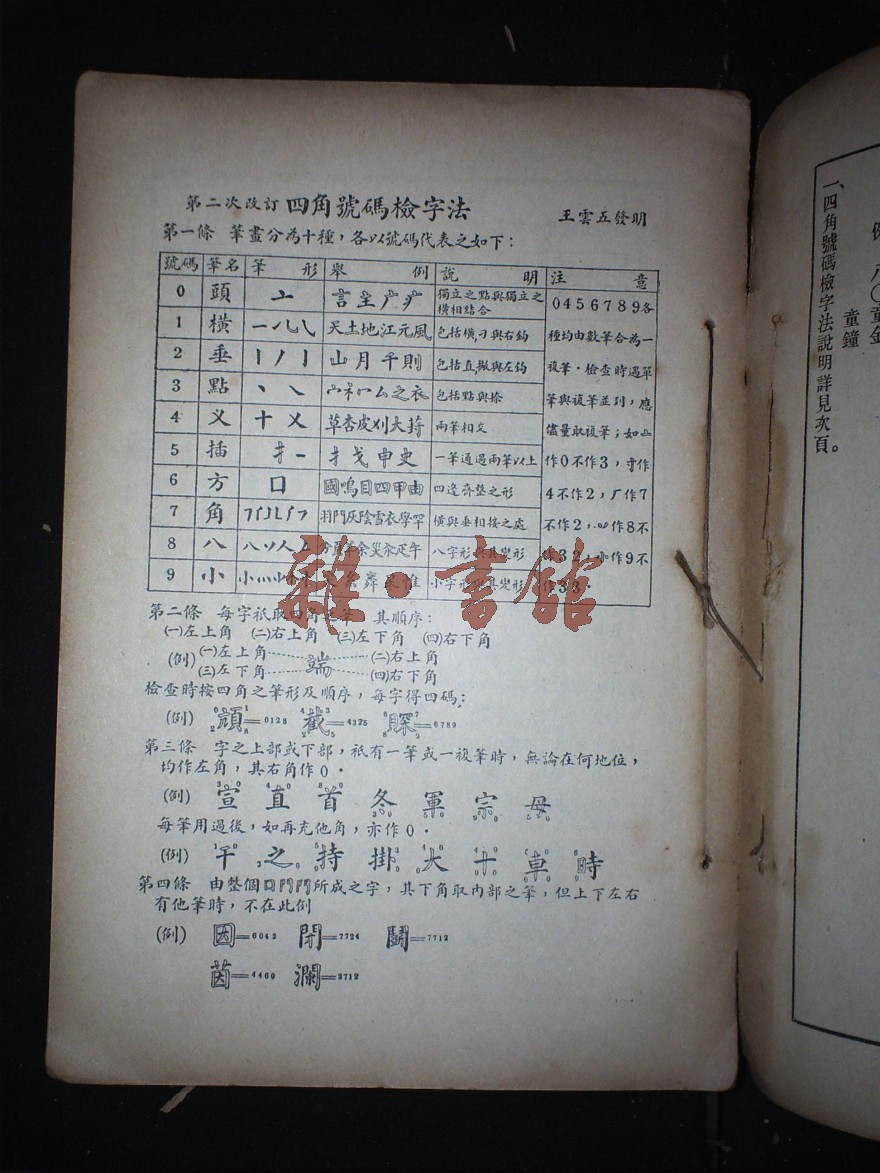 第二次改訂 四角號碼檢字法 王雲五發明
第一條 筆畫分為十種，各以號碼代表之如下：
號碼 筆名 筆形 舉例 說明 注意
0 頭 亠 言主广疒 獨立之點與獨立之橫相結合
1 橫 一 天土地江元風 包括橫刁與右鈎
2 垂 丨丿亅 山月千則 包括直撇與左鈎
3 點 丶 宀礻冖厶之衣 包括點與捺
4 乂 十乂 草杏皮刈大葑 兩筆相交
5 插 扌 扌戈申史 一筆通過兩筆以上
6 方 口 國鳴目四甲由 四邊齊整之形
7 角 羽門灰陰雪衣學罕 橫與垂相接之處
8 八 八丷人 八字形與其變形
9 小 小 小字形與其變形
0 4 5 6 7 8 9 各
種均由數筆合為一
複筆．檢查時遇單
筆與複筆並列，應
儘量取複筆；如亠
作0不作3，寸作
4不作2，厂作7
不作2，丷作8不
作32，小作9不
作33．
第二條 每字祇取四角之筆 其順序：
(一)左上角 (二)右上角 (三)左下角 (四)右下角
(例) (一)左上角 端 (二)右上角
(三)左下角 (四)右下角
檢查時按四角之筆形及順序，每字得四碼：
(例) 顔=0128 截=4325 䁎=6789
第三條 字之上部或下部，祇有一筆或一複筆時，無論在何地位，
均作左角，其右角作0．
(例) 宣 直 首 冬 軍 宗 母
每筆用過後，如再充他角，亦作0．
(例) 干 之 持 掛 大 十 車 時
第四條 由整個囗門鬥所成之字，其下角取內部之筆，但上下左右
有他筆時，不在此例
(例) 因=6043 閉=7724 鬭=7712
茵=4460 瀾=3712
雜·書館
一、四角號碼檢字法說明詳見次頁。
例
童鐘